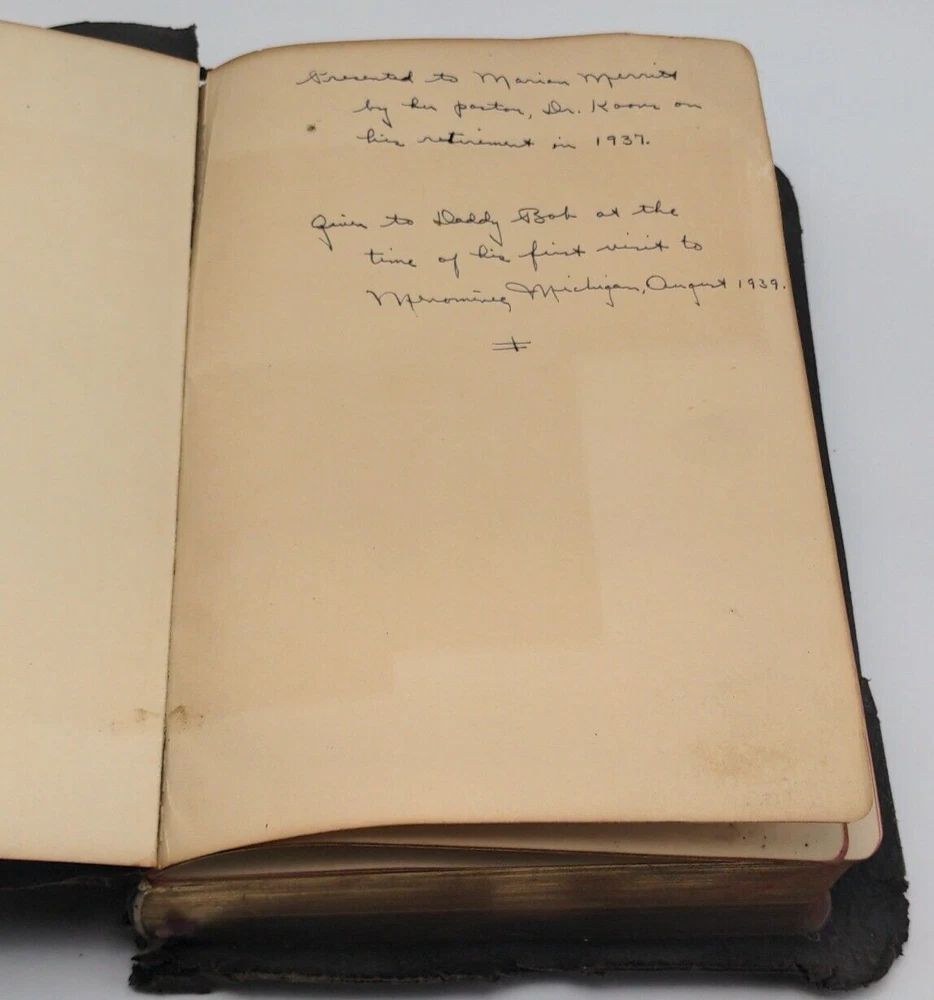 Presented to Marian Merritt
by her pastor, Dr. Koom on
his retirement in 1937.
Given to Daddy Bob at the
time of his first visit to
Menominee, Michigan, August 1939.